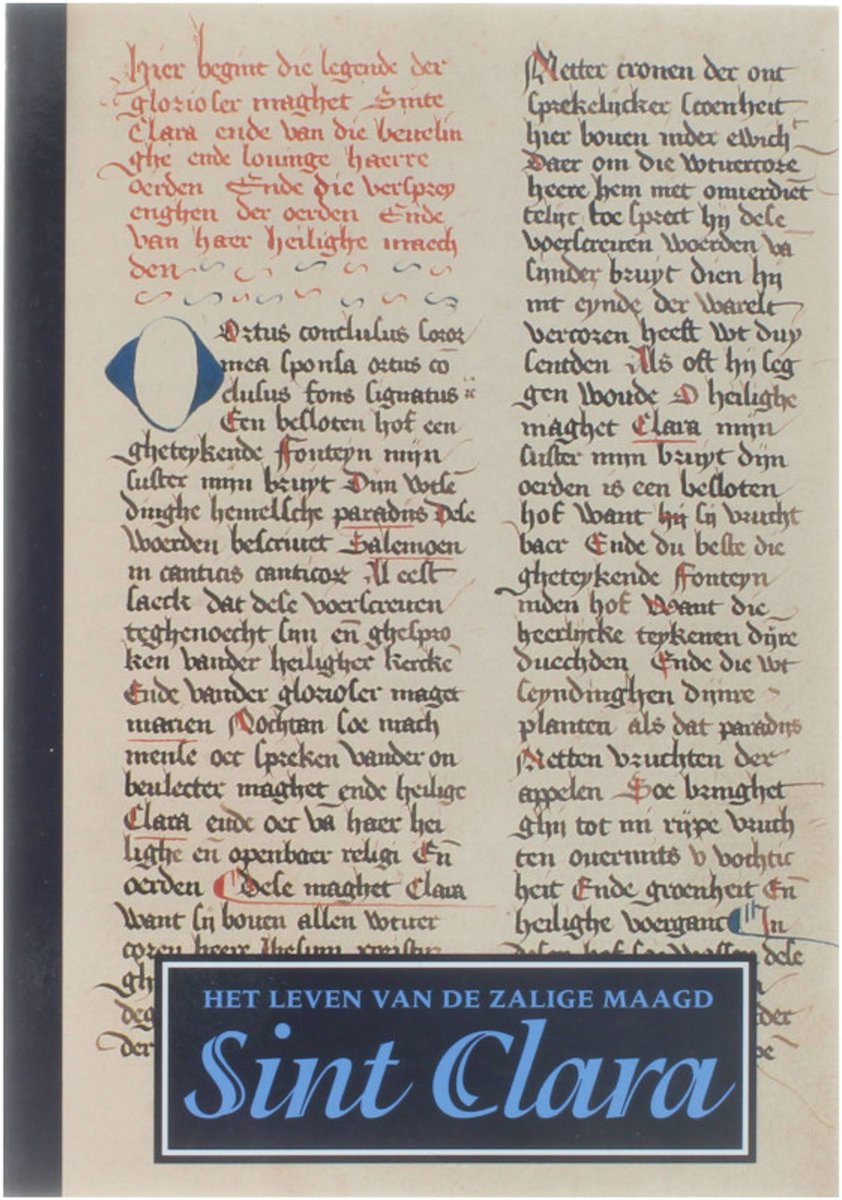 Hier begint die legende der
glorioser maghet Sinte
Clara ende van die beuelin
ghe ende louinge haerre
oerden Ende die versprey
enghen der oerden Ende
van haer heilighe maech
den
Ortus conclusus soror
mea sponsa ortus cō
clusus fons signatus
Een besloten hof een
gheteykende Fonteyn mijn
suster mijn bruyt Dijn wtse
dinghe hemelsche paradijs Dese
woerden bescriuet Salemoen
in canticis canticor Al eest
saeck dat dese voerscreuen
teghenoecht sijn eñ ghespro
ken vander heiligher kercke
Ende vander glorioser maget
marien Nochtan soe mach
mense oec spreken vander on
beulecter maghet ende heilige
Clara ende oec vā haer hei
lighe eñ openbaer religi Eñ
oerden Dese maghet Clara
want sij bouen allen wtuer
coren heere Ihesum
Metter cronen der ont
sprekelijcker scoenheit
hier bouen inder ewich
Daer om die wtuercore
heere hem met onuerdiet
telijc toe sprect hij dese
voerscreuen woerden vā
sijnder bruyt dien hij
int eynde der warelt
vercoren heeft wt duy
senden Als oft hij seg
gen woude O heilighe
maghet Clara mijn
suster mijn bruyt dijn
oerden is een besloten
hof want hij sij vrucht
baer Ende du beste die
gheteykende Fonteyn
inden hof want die
heerlijcke teykenen dijre
duechden Ende die wt
seyndinghen dijnre
planten als dat paradijs
Metten vruchten der
appelen Soe bringhet
ghij tot mi rijpe vruch
ten ouermits v vochtic
heit Ende groenheit Eñ
heilighe voerganc In
desen hof soe wassen dese
HET LEVEN VAN DE ZALIGE MAAGD
Sint Clara